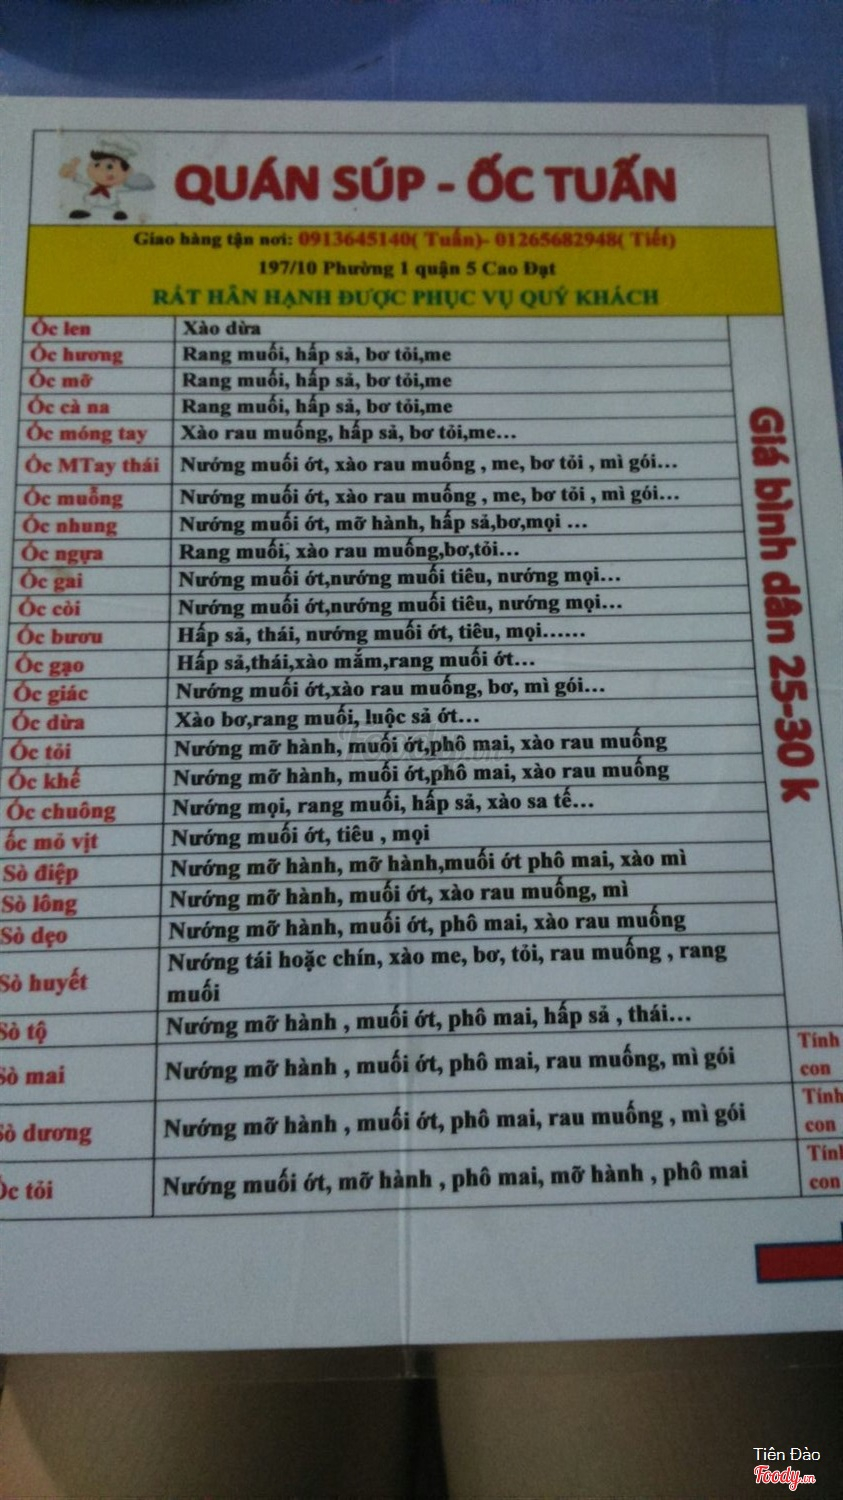 QUÁN SÚP - ỐC TUẤN
Giao hàng tận nơi: 0913645140( Tuấn)- 01265682948( Tiết)
197/10 Phường 1 quận 5 Cao Đạt
RẤT HÂN HẠNH ĐƯỢC PHỤC VỤ QUÝ KHÁCH
Ốc len Xào dừa
Ốc hương Rang muối, hấp sả, bơ tỏi,me
Ốc mỡ Rang muối, hấp sả, bơ tỏi,me
Ốc cà na Rang muối, hấp sả, bơ tỏi,me
Ốc móng tay Xào rau muống, hấp sả, bơ tỏi,me...
Ốc MTay thái Nướng muối ớt, xào rau muống , me, bơ tỏi , mì gói...
Ốc muỗng Nướng muối ớt, xào rau muống , me, bơ tỏi , mì gói...
Ốc nhung Nướng muối ớt, mỡ hành, hấp sả,bơ,mọi ...
Ốc ngựa Rang muối, xào rau muống,bơ,tỏi...
Ốc gai Nướng muối ớt,nướng muối tiêu, nướng mọi...
Ốc còi Nướng muối ớt,nướng muối tiêu, nướng mọi...
Ốc bươu Hấp sả, thái, nướng muối ớt, tiêu, mọi......
Ốc gạo Hấp sả,thái,xào mắm,rang muối ớt...
Ốc giác Nướng muối ớt,xào rau muống, bơ, mì gói...
Ốc dừa Xào bơ,rang muối, luộc sả ớt...
Ốc tỏi Nướng mỡ hành, muối ớt,phô mai, xào rau muống
Ốc khế Nướng mỡ hành, muối ớt,phô mai, xào rau muống
Ốc chuông Nướng mọi, rang muối, hấp sả, xào sa tế...
ốc mỏ vịt Nướng muối ớt, tiêu , mọi
Sò điệp Nướng mỡ hành, mỡ hành,muối ớt phô mai, xào mì
Sò lông Nướng mỡ hành, muối ớt, xào rau muống, mì
Sò dẹo Nướng mỡ hành, muối ớt, phô mai, xào rau muống
Sò huyết Nướng tái hoặc chín, xào me, bơ, tỏi, rau muống , rang
muối
Sò tộ Nướng mỡ hành , muối ớt, phô mai, hấp sả , thái...
Giá bình dân 25-30 k
Sò mai Nướng mỡ hành , muối ớt, phô mai, rau muống, mì gói Tính
con
Sò dương Nướng mỡ hành , muối ớt, phô mai, rau muống , mì gói Tính
con
Ốc tỏi Nướng muối ớt, mỡ hành , phô mai, mỡ hành , phô mai Tính
con
Tiên Đào
Foody.vn